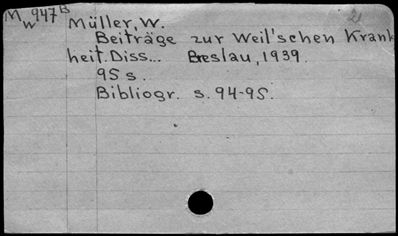 Mw947B
Müller, W.
Beiträge zur Weil'schen Krank
heit. Diss... Breslau, 1939.
95 s.
Bibliogr. s. 94-95.